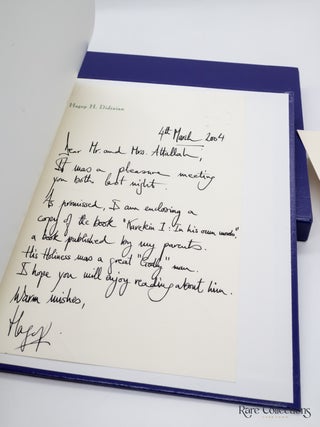 Hagop H. Didizian
4th March 2004
Dear Mr. and Mrs. Attallah,
It was a pleasure meeting
you both last night.
As promised, I am enclosing a
copy of the book "Karekin I: In his own words"
a book published by my parents.
His Holiness was a great "Godly" man.
I hope you will enjoy reading about him.
Warm wishes,
Hagop
Rare Collections